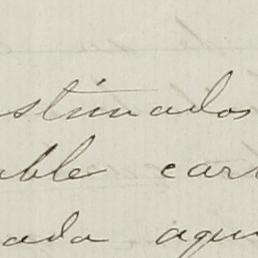 stimados
able car
ada aqu